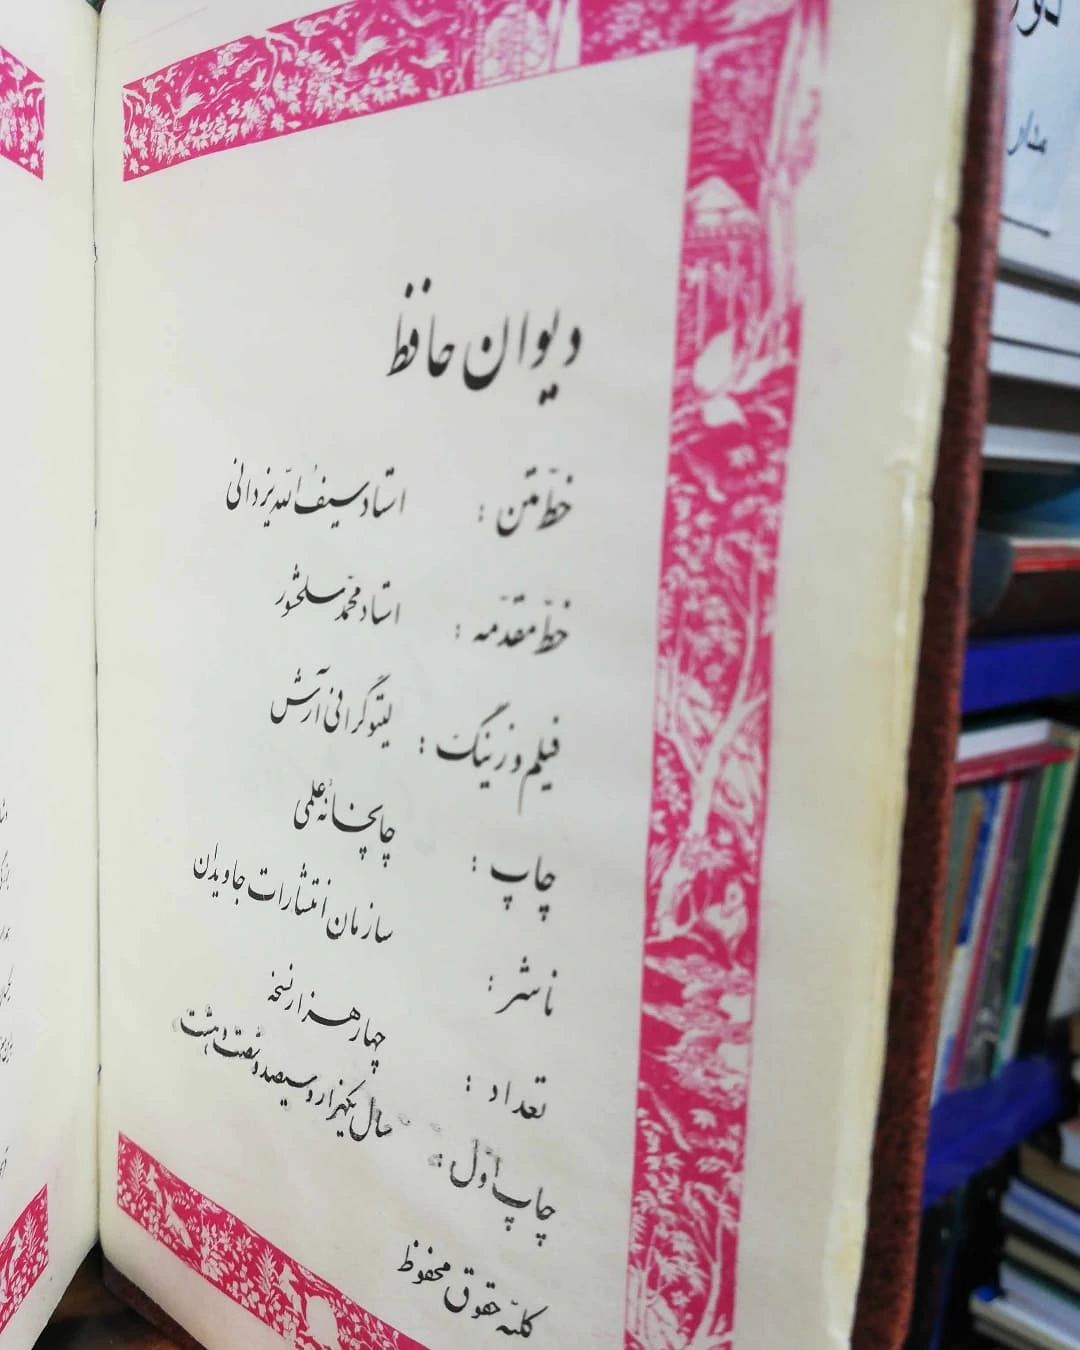 دیوان حافظ
خطّ متن : استاد سیف‌اللّه یزدانی
خطّ مقدّمه : استاد محمّد سلحشور
فیلم و زینگ : لیتوگرافی آرش
چاپ : چاپخانهٔ علمی
ناشر : سازمان انتشارات جاویدان
تعداد : چهار هزار نسخه
چاپ اوّل : سال یکهزار و سیصد و شصت و هشت
کلیّه حقوق محفوظ